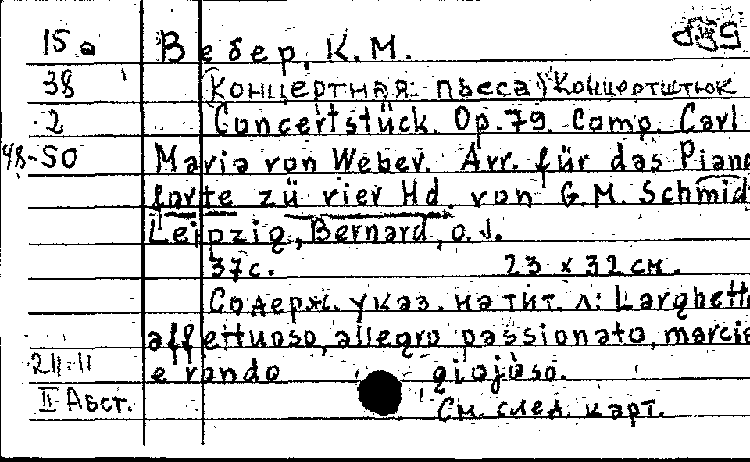 15а Вебер, К.М.
38 (Концертная пьеса) Концертштюк
2 Concertstück. Op. 79. Comp. Carl
48-50 Maria von Weber. Arr. für das Piano
forte zü vier Hd. von G.M. Schmid
Leipzig, Bernard, o.J.
37с. 23 x 32 см.
Содерж. указ. на тит. л: Larghett
affettuoso, allegro passionato, marcia
211-11 e rondo giojoso.
II Абст. См. след. карт.